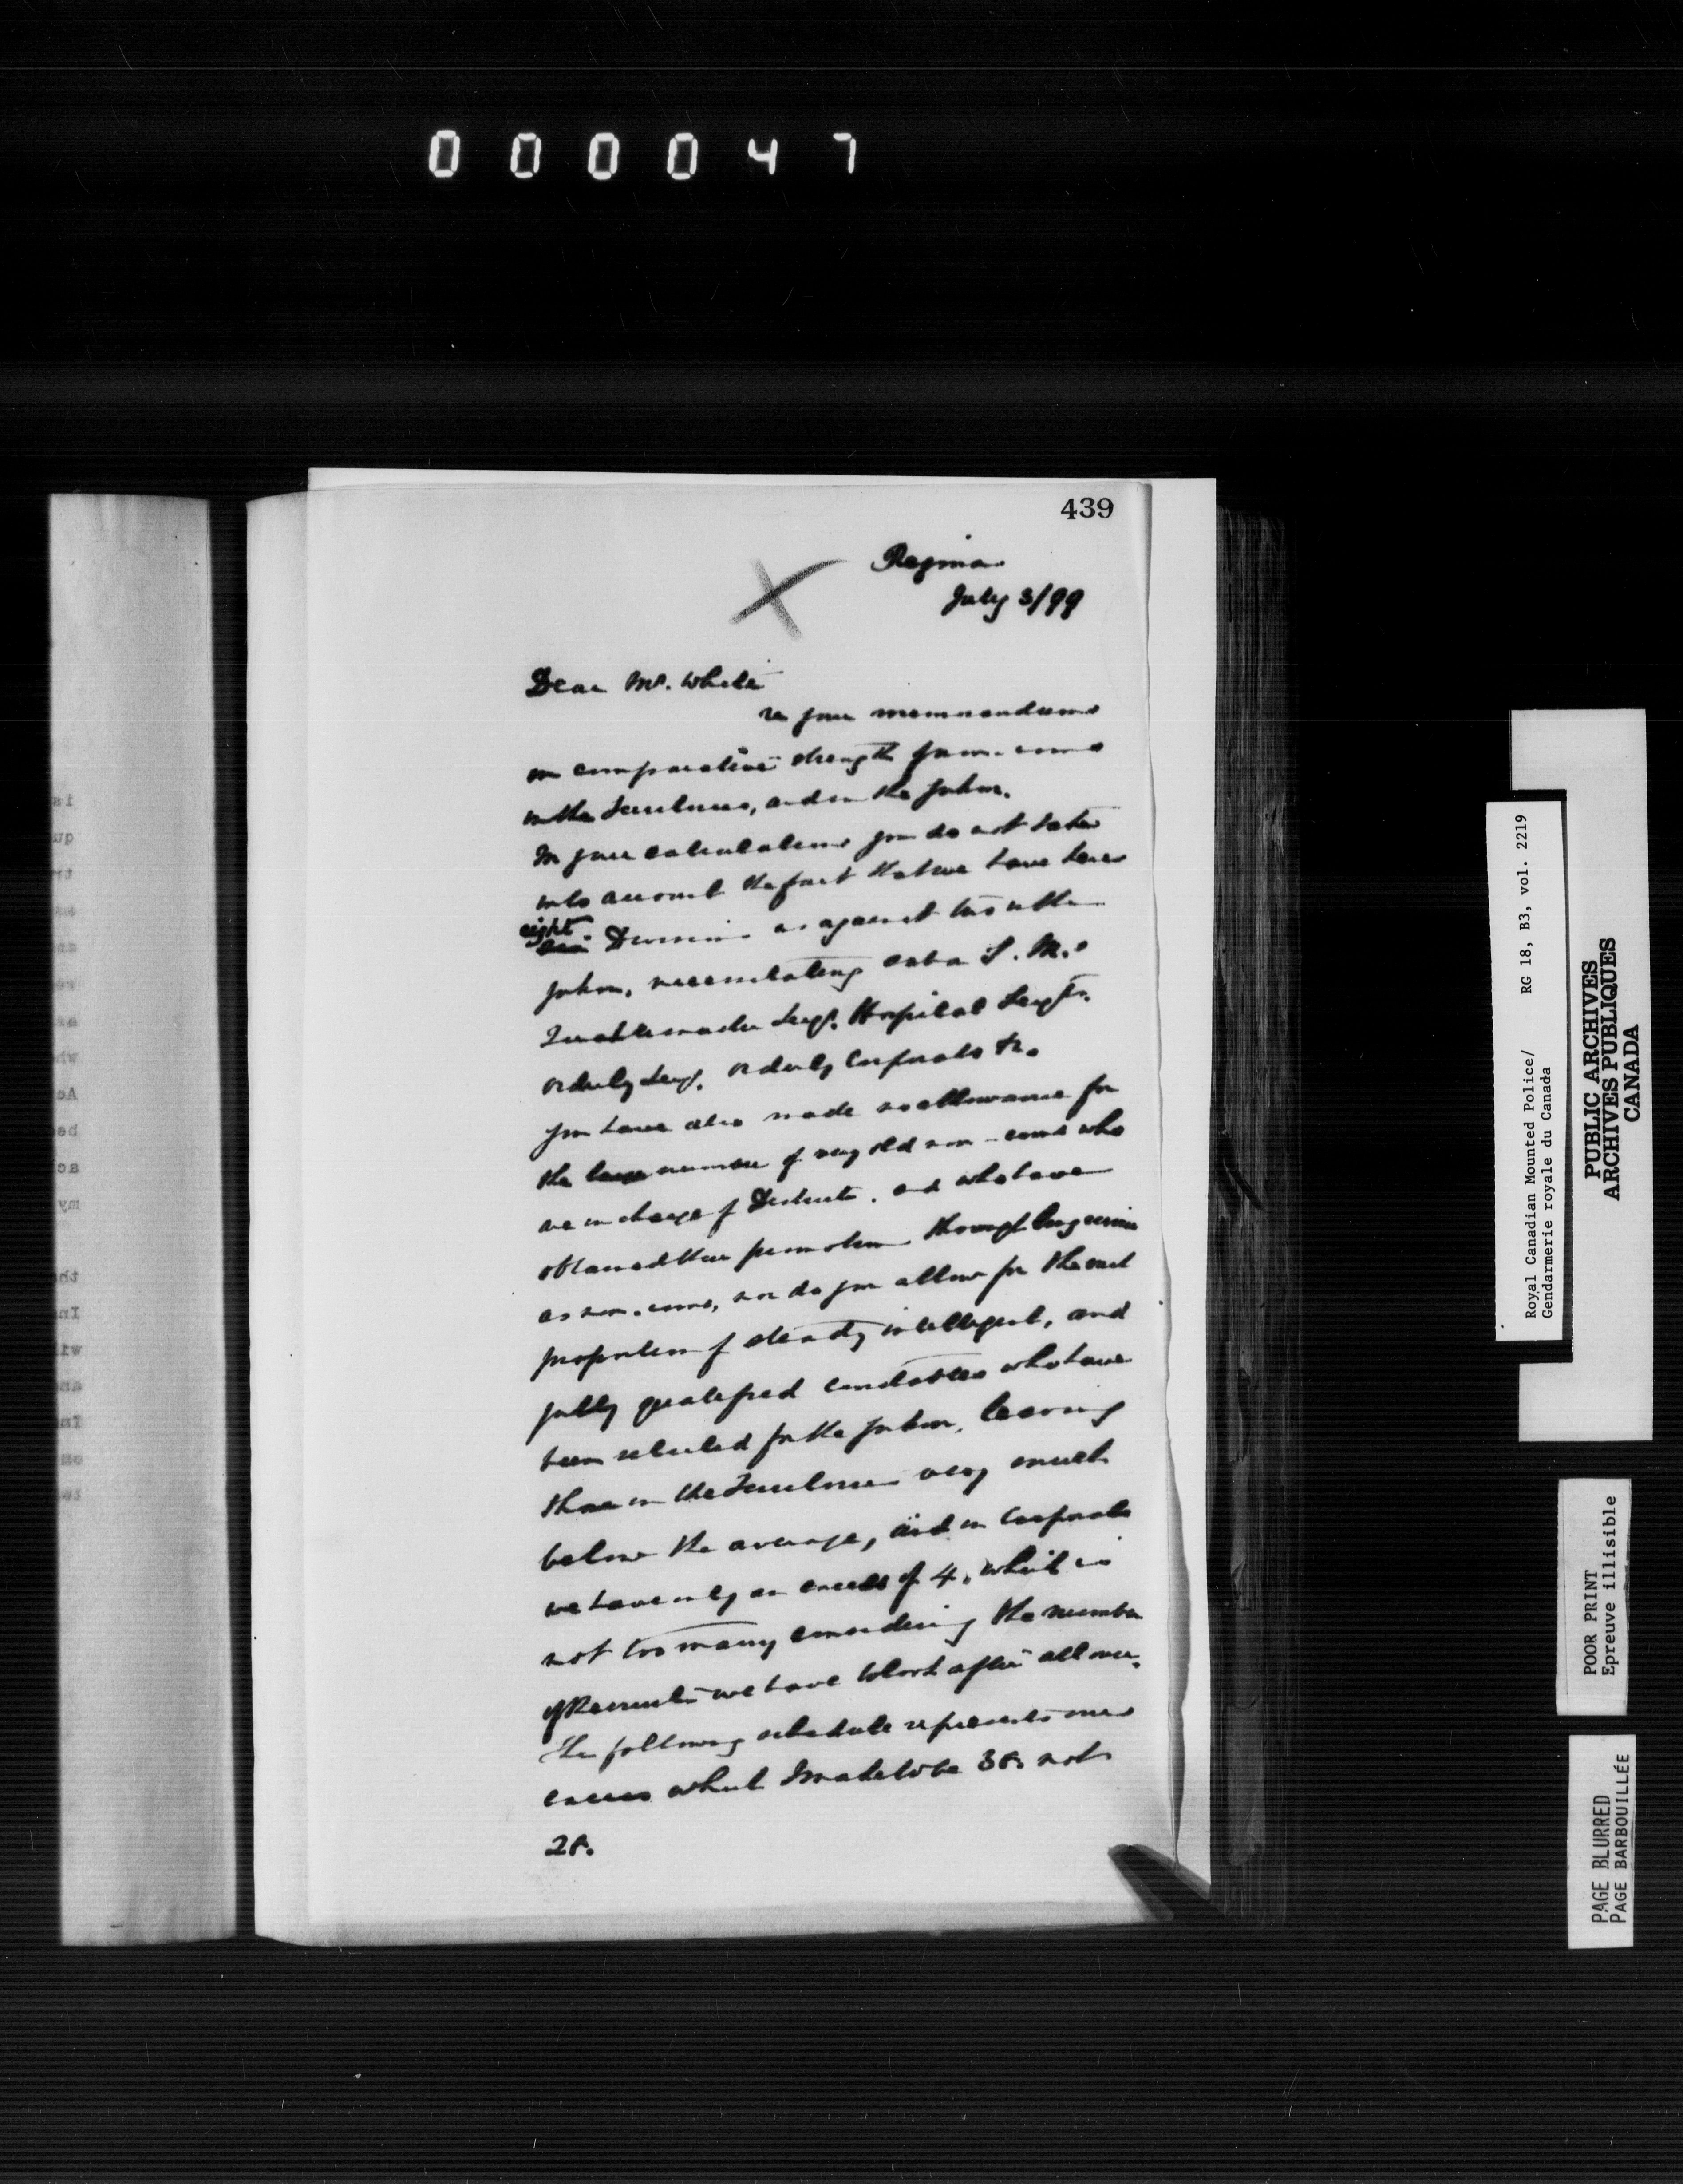 000047
439
Regina
July 3/99
Dear Mr. White
re your memorandum
on comparative strength of non-coms
in the Territories, and in the Yukon.
In your calculations you do not take
into account the fact that we have here
eight Divisions as against two in the
Yukon, necessitating extra S. M.s
Quartermaster Sergt. Hospital Sergts.
orderly Sergt. orderly Corporals &c.
you have also made no allowance for
the large number of very old non-coms who
are in charge of Districts, and who have
obtained their promotion through long service
as non. coms, nor do you allow for the
proportion of steady intelligent, and
fully qualified constables who have
been selected for the Yukon, leaving
those in the Territories very much
below the average, and in Corporals
we have only an excess of 4, which is
not too many considering the number
of Recruits we have to look after all over.
The following schedule represents our
excess which I make to be 38. not
28.
Royal Canadian Mounted Police/ RG 18, B3, vol. 2219
Gendarmerie royale du Canada
PUBLIC ARCHIVES
ARCHIVES PUBLIQUES
CANADA
POOR PRINT
Epreuve illisible
PAGE BLURRED
PAGE BARBOUILLÉE